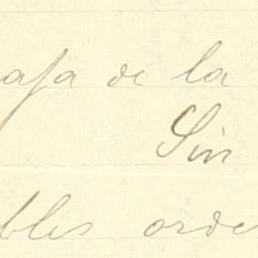 aja de la
Sin
bles orde